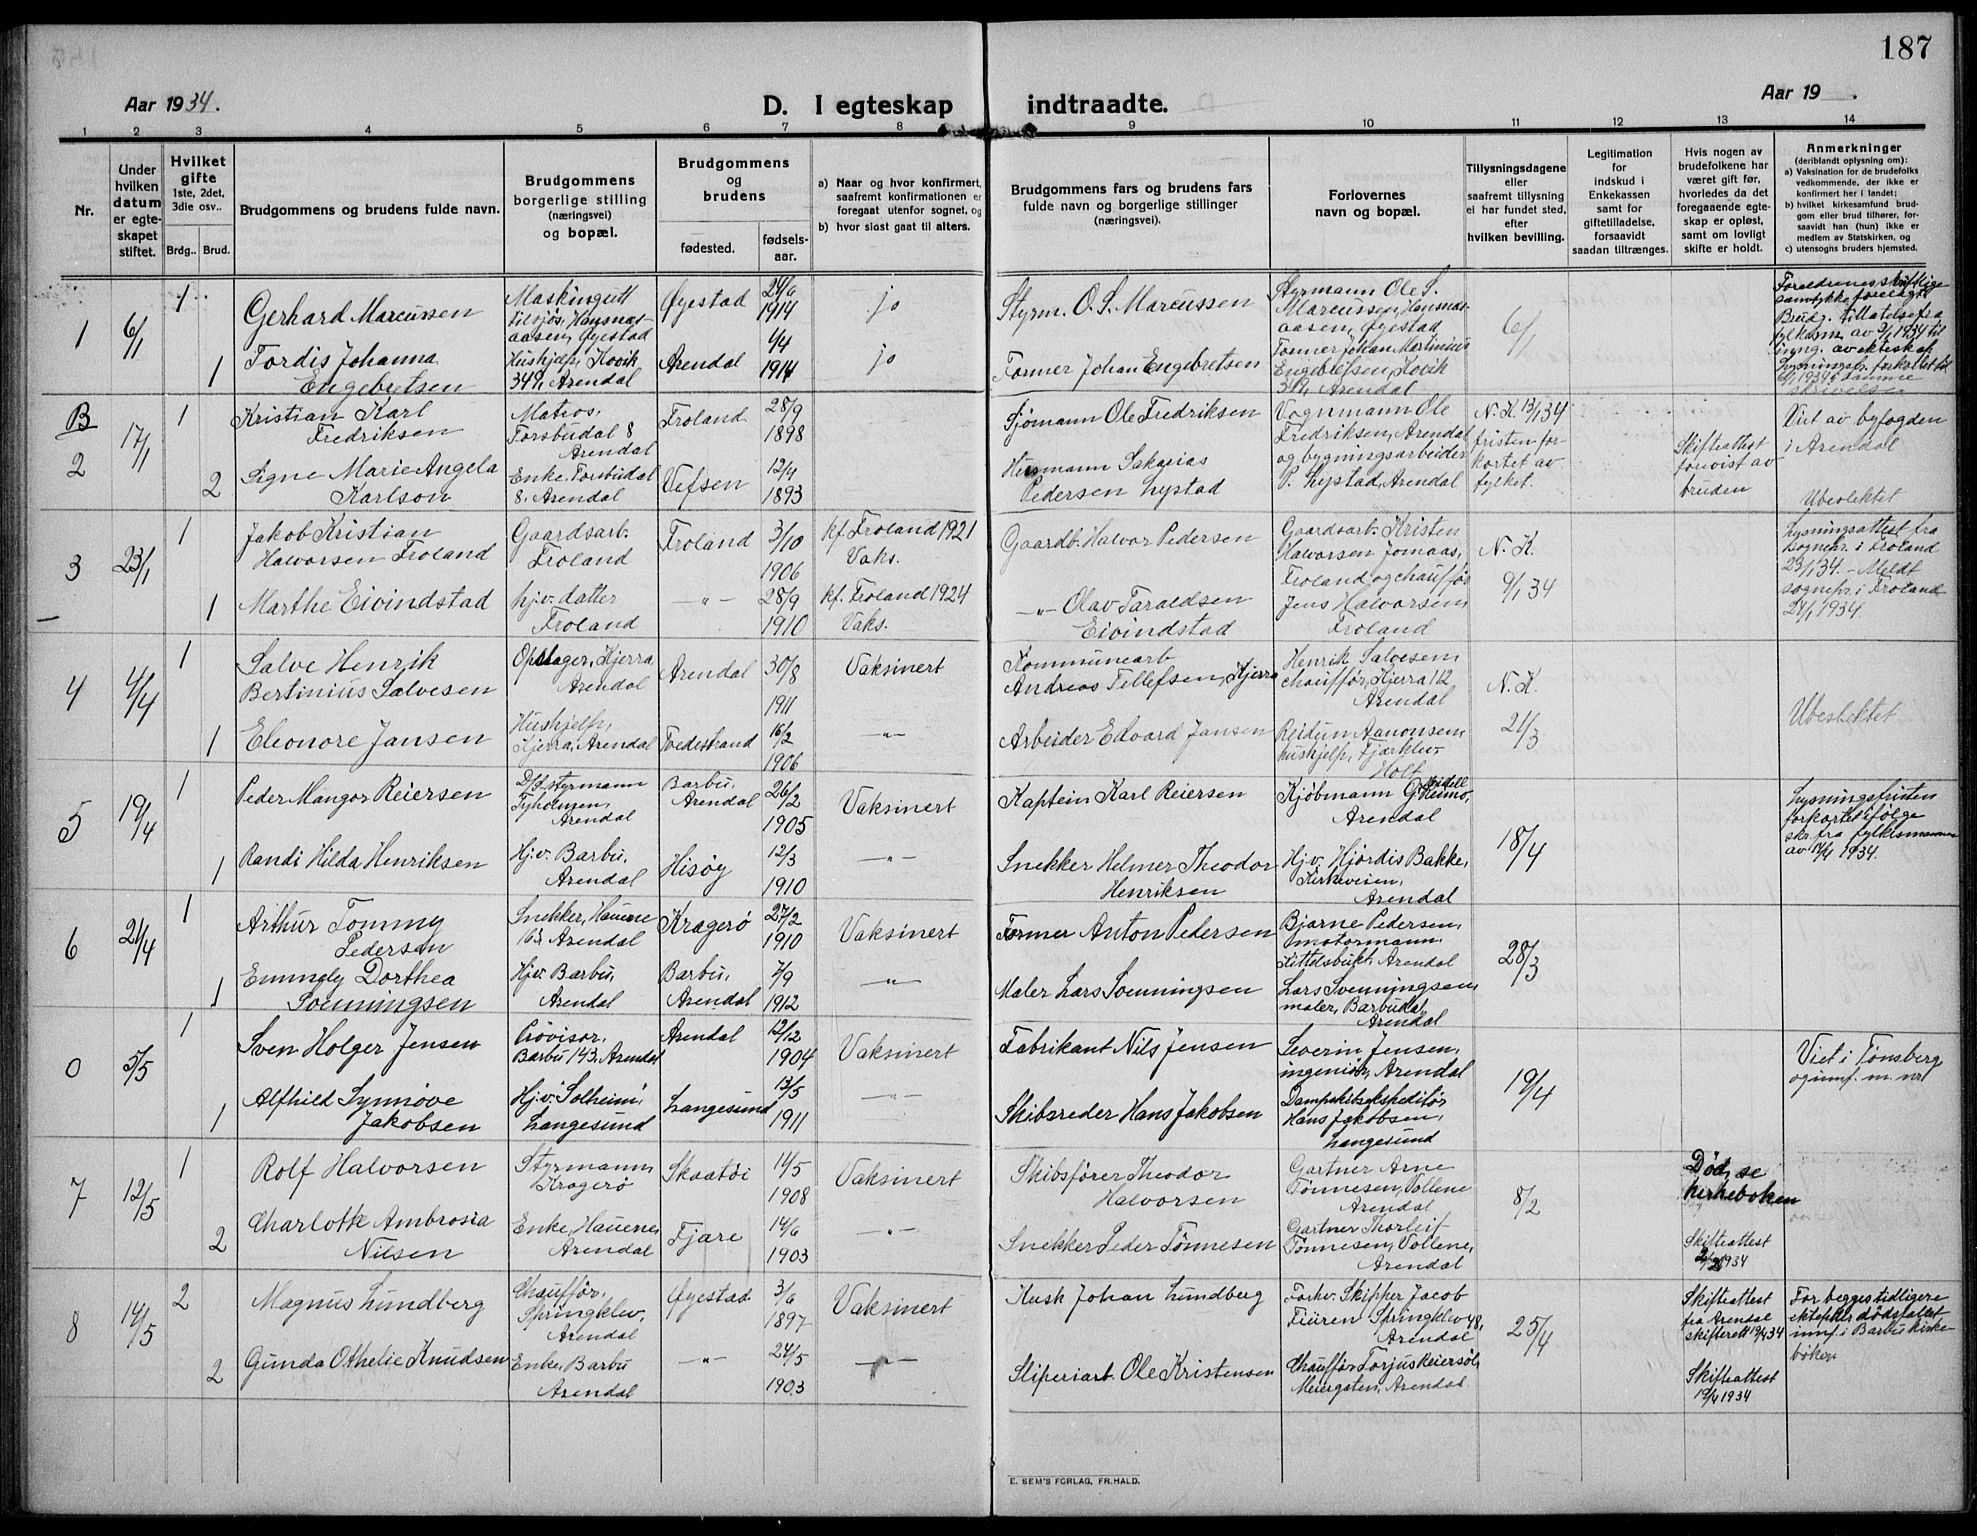 187
Aar 1934.
D. I egteskap indtraadte.
Aar 19 .
1 2 3 4 5 6 7 8 9 10 11 12 13 14
Nr.
Under hvilken datum er egte-skapet stiftet.
Hvilket gifte
1ste, 2det, 3die osv..
Brdg.. Brud.
Brudgommens og brudens fulde navn.
Brudgommens borgerlige stilling (næringsvei) og bopæl.
Brudgommens og brudens
fødested. fødsels-aar.
a) Naar og hvor konfirmert, saafremt konfirmationen er foregaat utenfor sognet, og
b) hvor sidst gaat til alters.
Brudgommens fars og brudens fars fulde navn og borgerlige stillinger (næringsvei).
Forlovernes navn og bopæl.
Tillysningsdagene eller saafremt tillysning ei har fundet sted, efter hvilken bevilling.
Legitimation for indskud i Enkekassen samt for giftetilladelse, forsaavidt saadan tiltrænges.
Hvis nogen av brudefolkene har været gift før, hvorledes da det foregaaende egte-skap er opløst, samt om lovligt skifte er holdt.
Anmerkninger
(deriblandt oplysning om):
a) Vaksination for de brudefolks vedkommende, der ikke er konfirmert her i landet;
b) hvilket kirkesamfund brud-gom eller brud tilhører, for-saavidt han (hun) ikke er medlem av Statskirken, og
c) utensogns bruders hjemsted.
1 6/1 1 Gerhard Marcussen
Maskingutt
tilsjøs, Hansnes-
aasen, Øyestad
Øyestad
1914
jo
Styrm. O. S. Marcussen
Styrmann Ole S.
Marcussen, Hansnes-
aasen, Øyestad
6/1
Foreldrenes skriftlige
samtykke forelagt
Brudg. tillatelse fra
fylkesm. av 3/1 1934 til
inng. av ekteskap
1 Tordis Johanna
Engebretsen
Hushjelp, Kovik
349, Arendal
Arendal
1914
jo
Former Johan Engebretsen
Former Johan Martinius
Engebretsen, Kovik
349, Arendal
B
2 17/1 1 Kristian Karl
Fredriksen
Matros,
Torsbudal 8
Arendal
Froland
28/9
1898
Sjømann Ole Fredriksen
Vognmann Ole
Fredriksen, Arendal
og bygningsarbeider
P. Lystad, Arendal
N. K. 13/1 34
fristen for-
kortet av
fylket.
Skifteattest
forvist av
bruden
Viet av byfogden
i Arendal
Ubeslektet
2 Signe Marie Angela
Karlson
Enke. Torsbudal
8. Arendal
Vefsen
12/4
1893
Husmann Sakarias
Pedersen Lystad
3 23/1 1 Jakob Kristian
Halvorsen Froland
Gaardsarb.
Froland
Froland
3/10
1906
kf. Froland 1921
Vaks.
Gaardb. Halvor Pedersen
Gaardsarb. Kristen
Halvorsen Jomaas,
Froland og chauffør
Jens Halvorsen,
Froland
N. K.
9/1 34
Lysningsattest fra
sognepr. i Froland
23/1 34. - Meldt
sognepr. i Froland
24/1 1934.
1 Marthe Eivindstad
hj.v. datter
Froland
-"-
28/9
1910
kf. Froland 1924
Vaks.
-"- Olav Taraldsen
Eivindstad
4 4/4 1 Salve Henrik
Bertinius Salvesen
Opslager, Kjerra,
Arendal
Arendal
30/8
1911
Vaksinert
Kommunearb
Andreas Tellefsen, Kjerra
Henrik Salvesen,
chauffør, Kjerra 112
Arendal
N. K.
21/3
Ubeslektet
1 Eleonore Jansen
Hushjelp,
Kjerra, Arendal
Tvedestrand
16/2
1906
-"-
Arbeider Edvard Jansen
Reidun Aanonsen,
hushjelp, Fjærkleiv
Holt
5 19/4 1 Peder Mangor Reiersen
D/S styrmann
Tyholmen,
Arendal
Barbu,
Arendal
26/2
1905
Vaksinert
Kaptein Karl Reiersen
Kjøbmann G.
Arendal
18/4
Lysningsfristen
forkortet ifølge
skr. fra fylkesmannen
av 17/4 1934.
1 Randi Hilda Henriksen
Hj.v. Barbu,
Arendal
Hisøy
12/3
1910
-"-
Snekker Helmer Theodor
Henriksen
Hj.v. Hjørdis Bakke,
Kirkeveien,
Arendal
6 21/4 1 Arthur Tommy
Pedersen
Snekker, Havene
Arendal
Kragerø
27/2
1910
Vaksinert
Former Anton Pedersen
Bjarne Pedersen,
motormann,
Kittelsbukt, Arendal
28/3
1 Emmely Dorthea
Svenningsen
Hj.v. Barbu,
Arendal
Barbu,
Arendal
7/9
1912
-"-
Maler Lars Svenningsen
Lars Svenningsen,
maler, Barbudal,
Arendal
0 5/5 1 Sven Holger Jensen
Provisor,
Barbu 143, Arendal
Arendal
12/12
1904
Vaksinert
Fabrikant Nils Jensen
Severin Jensen,
ingeniør, Arendal
19/4
Viet i Tønsberg,
og innf. m. nr.
1 Alfhild Synnøve
Jakobsen
Hj.v. Solheim,
Langesund
Langesund
13/5
1911
-"-
Skibsreder Hans Jakobsen
Dampskibsekspeditør
Hans Jakobsen,
Langesund
7 12/5 1 Rolf Halvorsen
Styrmann,
Kragerø
Skaatøi
14/5
1908
Vaksinert
Skibsfører Theodor
Halvorsen
Gartner Arne
Tønnesen, Vollene
Arendal
8/2
Død, se
kirkeboken
2 Charlotte Ambrosia
Nilsen
Enke, Havene,
Arendal
Fjære
14/6
1903
-"-
Snekker Peder Tønnesen
Gartner Thorleif
Tønnesen, Vollene,
Arendal
Skifteattest
1934
8 14/5 2 Magnus Lundberg
Chauffør,
Springkleiv,
Arendal
Øyestad
3/6
1897
Vaksinert
Kusk Johan Lundberg
Forhv. Skipper Jacob
Fiuren Springkleiv 48,
Arendal
25/4
Skifteattest
fra Arendal
skifterett 19/4 34
For begges tidligere
ektefellers dødsfallet
innf. i Barbu kirke
bøker
2 Gunda Othelie Knudsen
Enke, Barbu
Arendal
-"-
24/5
1903
-"-
Sliperiarb. Ole Kristensen
Chauffør Torjus Reiersøl,
Meiergaten, Arendal.
Skifteattest
19/4 1934
E. SEM'S FORLAG, FR.HALD.